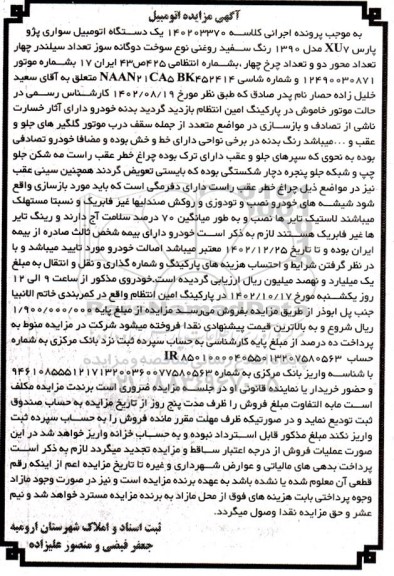 آگهی مزایده اتومبیل
به موجب پرونده اجرائی کلاسه ۱۴۰۲۰۳۳۷۰ یک دستگاه اتومبیل سواری پژو
پارس XU۷ مدل ۱۳۹۰ رنگ سفید روغنی نوع سوخت دوگانه سوز تعداد سیلندر چهار
تعداد محور دو و تعداد چرخ چهار ،بشماره انتظامی ۴۲۵ص۴۳ ایران ۱۷ بشماره موتور
۱۲۴۹۰۰۳۰۸۷۱ و شماره شاسی NAAN۲۱CA۵BK۴۵۲۴۱۴ متعلق به آقای سعید
خلیل زاده حصار نام پدر صادق که طبق نظر مورخ ۱۴۰۲/۰۸/۱۹ کارشناس رسمی در
حالت موتور خاموش در پارکینگ امین انتظام بازدید گردید بدنه خودرو دارای آثار خسارت
ناشی از تصادف و بازسازی در مواضع متعدد از جمله سقف درب موتور گلگیر های جلو و
عقب و ...میباشد رنگ بدنه در برخی نواحی دارای خط و خش بوده و مضافا خودرو تصادفی
بوده به نحوی که سپرهای جلو و عقب دارای ترک بوده چراغ خطر عقب راست مه شکن جلو
چپ و شبکه جلو پنجره دچار شکستگی بوده که بایستی تعویض گردند همچنین سینی عقب
نیز در مواضع ذیل چراغ خطر عقب راست دارای دفرمگی است که باید مورد بازسازی واقع
شود شیشه های خودرو نصب و تودوزی و روکش صندلیها غیر فابریک و نسبتا مستهلک
میباشند لاستیک تایر ها نصب و به طور میانگین ۷۰ درصد سلامت آج دارند و رینگ تایر
ها غیر فابریک هستند لازم به ذکر است خودرو دارای بیمه شخص ثالث صادره از بیمه
ایران بوده و تا تاریخ ۱۴۰۲/۱۲/۲۵ معتبر میباشد اصالت خودرو مورد تایید میباشد و با
در نظر گرفتن شرایط و احتساب هزینه های پارکینگ و شماره گذاری و نقل و انتقال به مبلغ
یک میلیارد و نهصد میلیون ریال ارزیابی گردیده است.خودروی مذکور از ساعت ۹ الی ۱۲
روز یکشنبه مورخ ۱۴۰۲/۱۰/۱۷ در پارکینگ امین انتظام واقع در کمربندی خاتم الانبیا
جنب پل ابوذر از طریق مزایده بفروش می‌رسد مزایده از مبلغ پایه ۱/۹۰۰/۰۰۰/۰۰۰
ریال شروع و به بالاترین قیمت پیشنهادی نقدا فروخته میشود شرکت در مزایده منوط به
پرداخت ده درصد از مبلغ پایه کارشناسی به حساب سپرده ثبت نزد بانک مرکزی به شماره
حساب IR ۸۵۰۱۰۰۰۰۴۰۵۵۰۱۳۲۰۷۵۸۰۵۶۳
با شناسه واریز بانک مرکزی به شماره ۹۴۶۱۰۸۵۵۵۱۲۱۷۱۳۲۰۰۳۶۰۰۷۷۵۸۰۵۶۳
و حضور خریدار یا نماینده قانونی او در جلسه مزایده ضروری است برندت مزایده مکلف
است مابه التفاوت مبلغ فروش را ظرف مدت پنج روز از تاریخ مزایده به حساب صندوق
ثبت تودیع نماید و در صورتیکه ظرف مهلت مقرر مانده فروش را به حساب سپرده ثبت
واریز نکند مبلغ مذکور قابل استرداد نبوده و به حساب خزانه واریز خواهد شد در این
صورت عملیات فروش از درجه اعتبار ساقط و مزایده تجدید میگردد لازم به ذکر است
پرداخت بدهی های مالیاتی و عوارض شهرداری و غیره تا تاریخ مزایده اعم از اینکه رقم
قطعی آن معلوم شده یا نشده باشد به عهده برنده مزایده است و نیز در صورت وجود مازاد
وجوه پرداختی بابت هزینه های فوق از محل مازاد به برنده مزایده مسترد خواهد شد و نیم
عشر و حق مزایده نقدا وصول میگردد.
ثبت اسناد و املاک شهرستان ارومیه
جعفر فیضی و منصور علیزاده